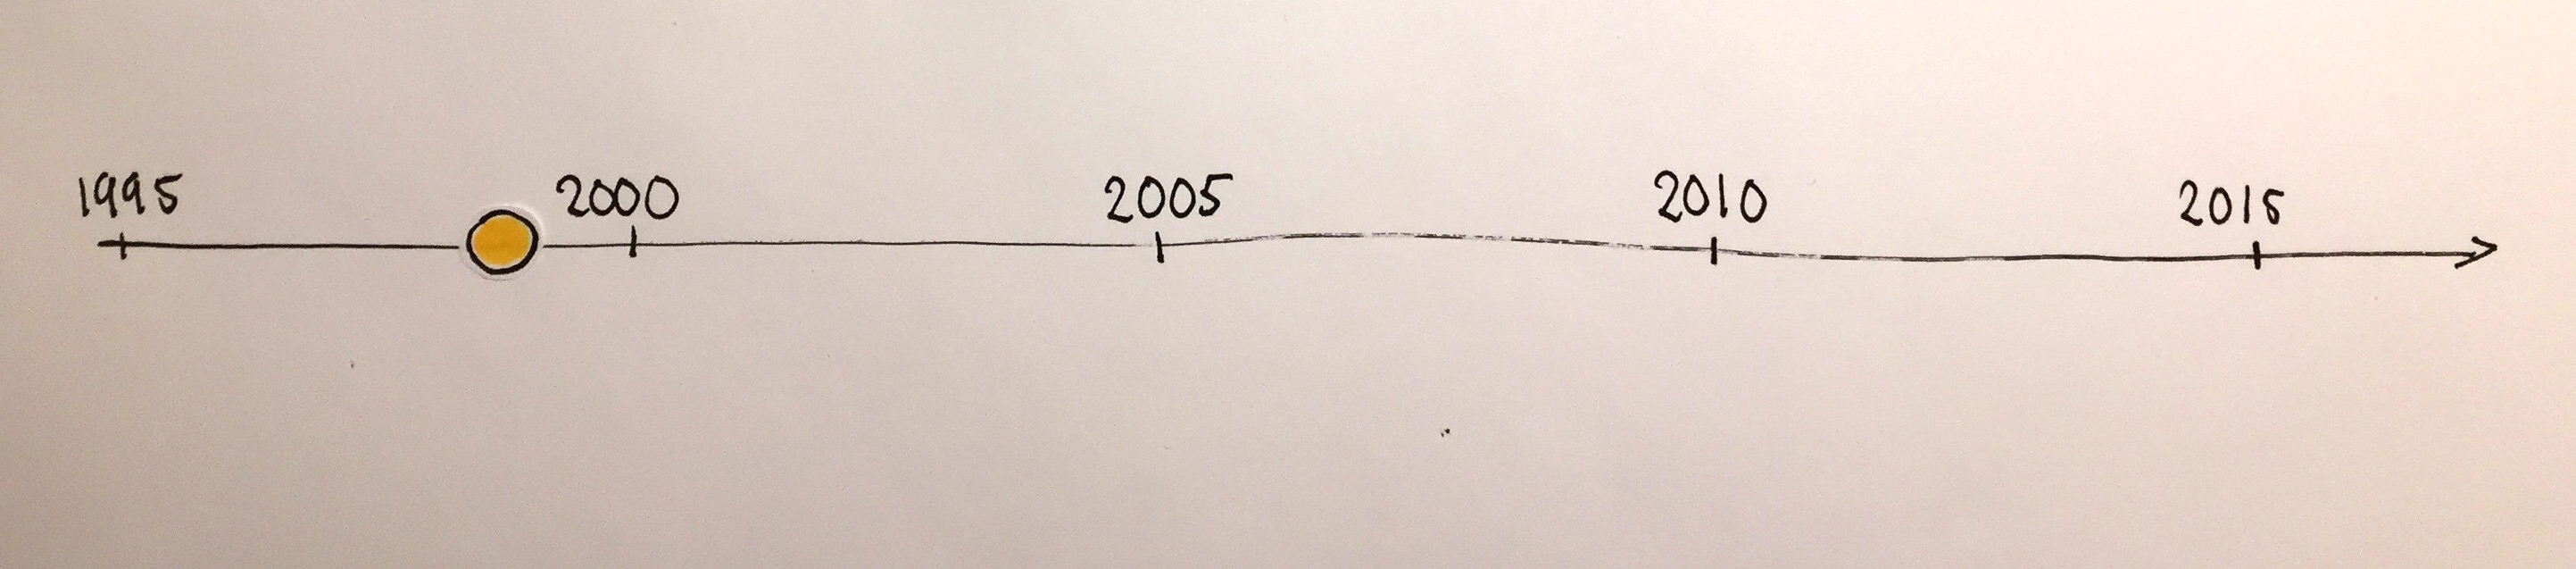 1995 2000 2005 2010 2015